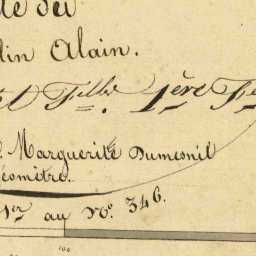 lin Alain.
et Fille. 1ère Fe
Marguerite Dumesnil
éomètre.
1er au No. 346.